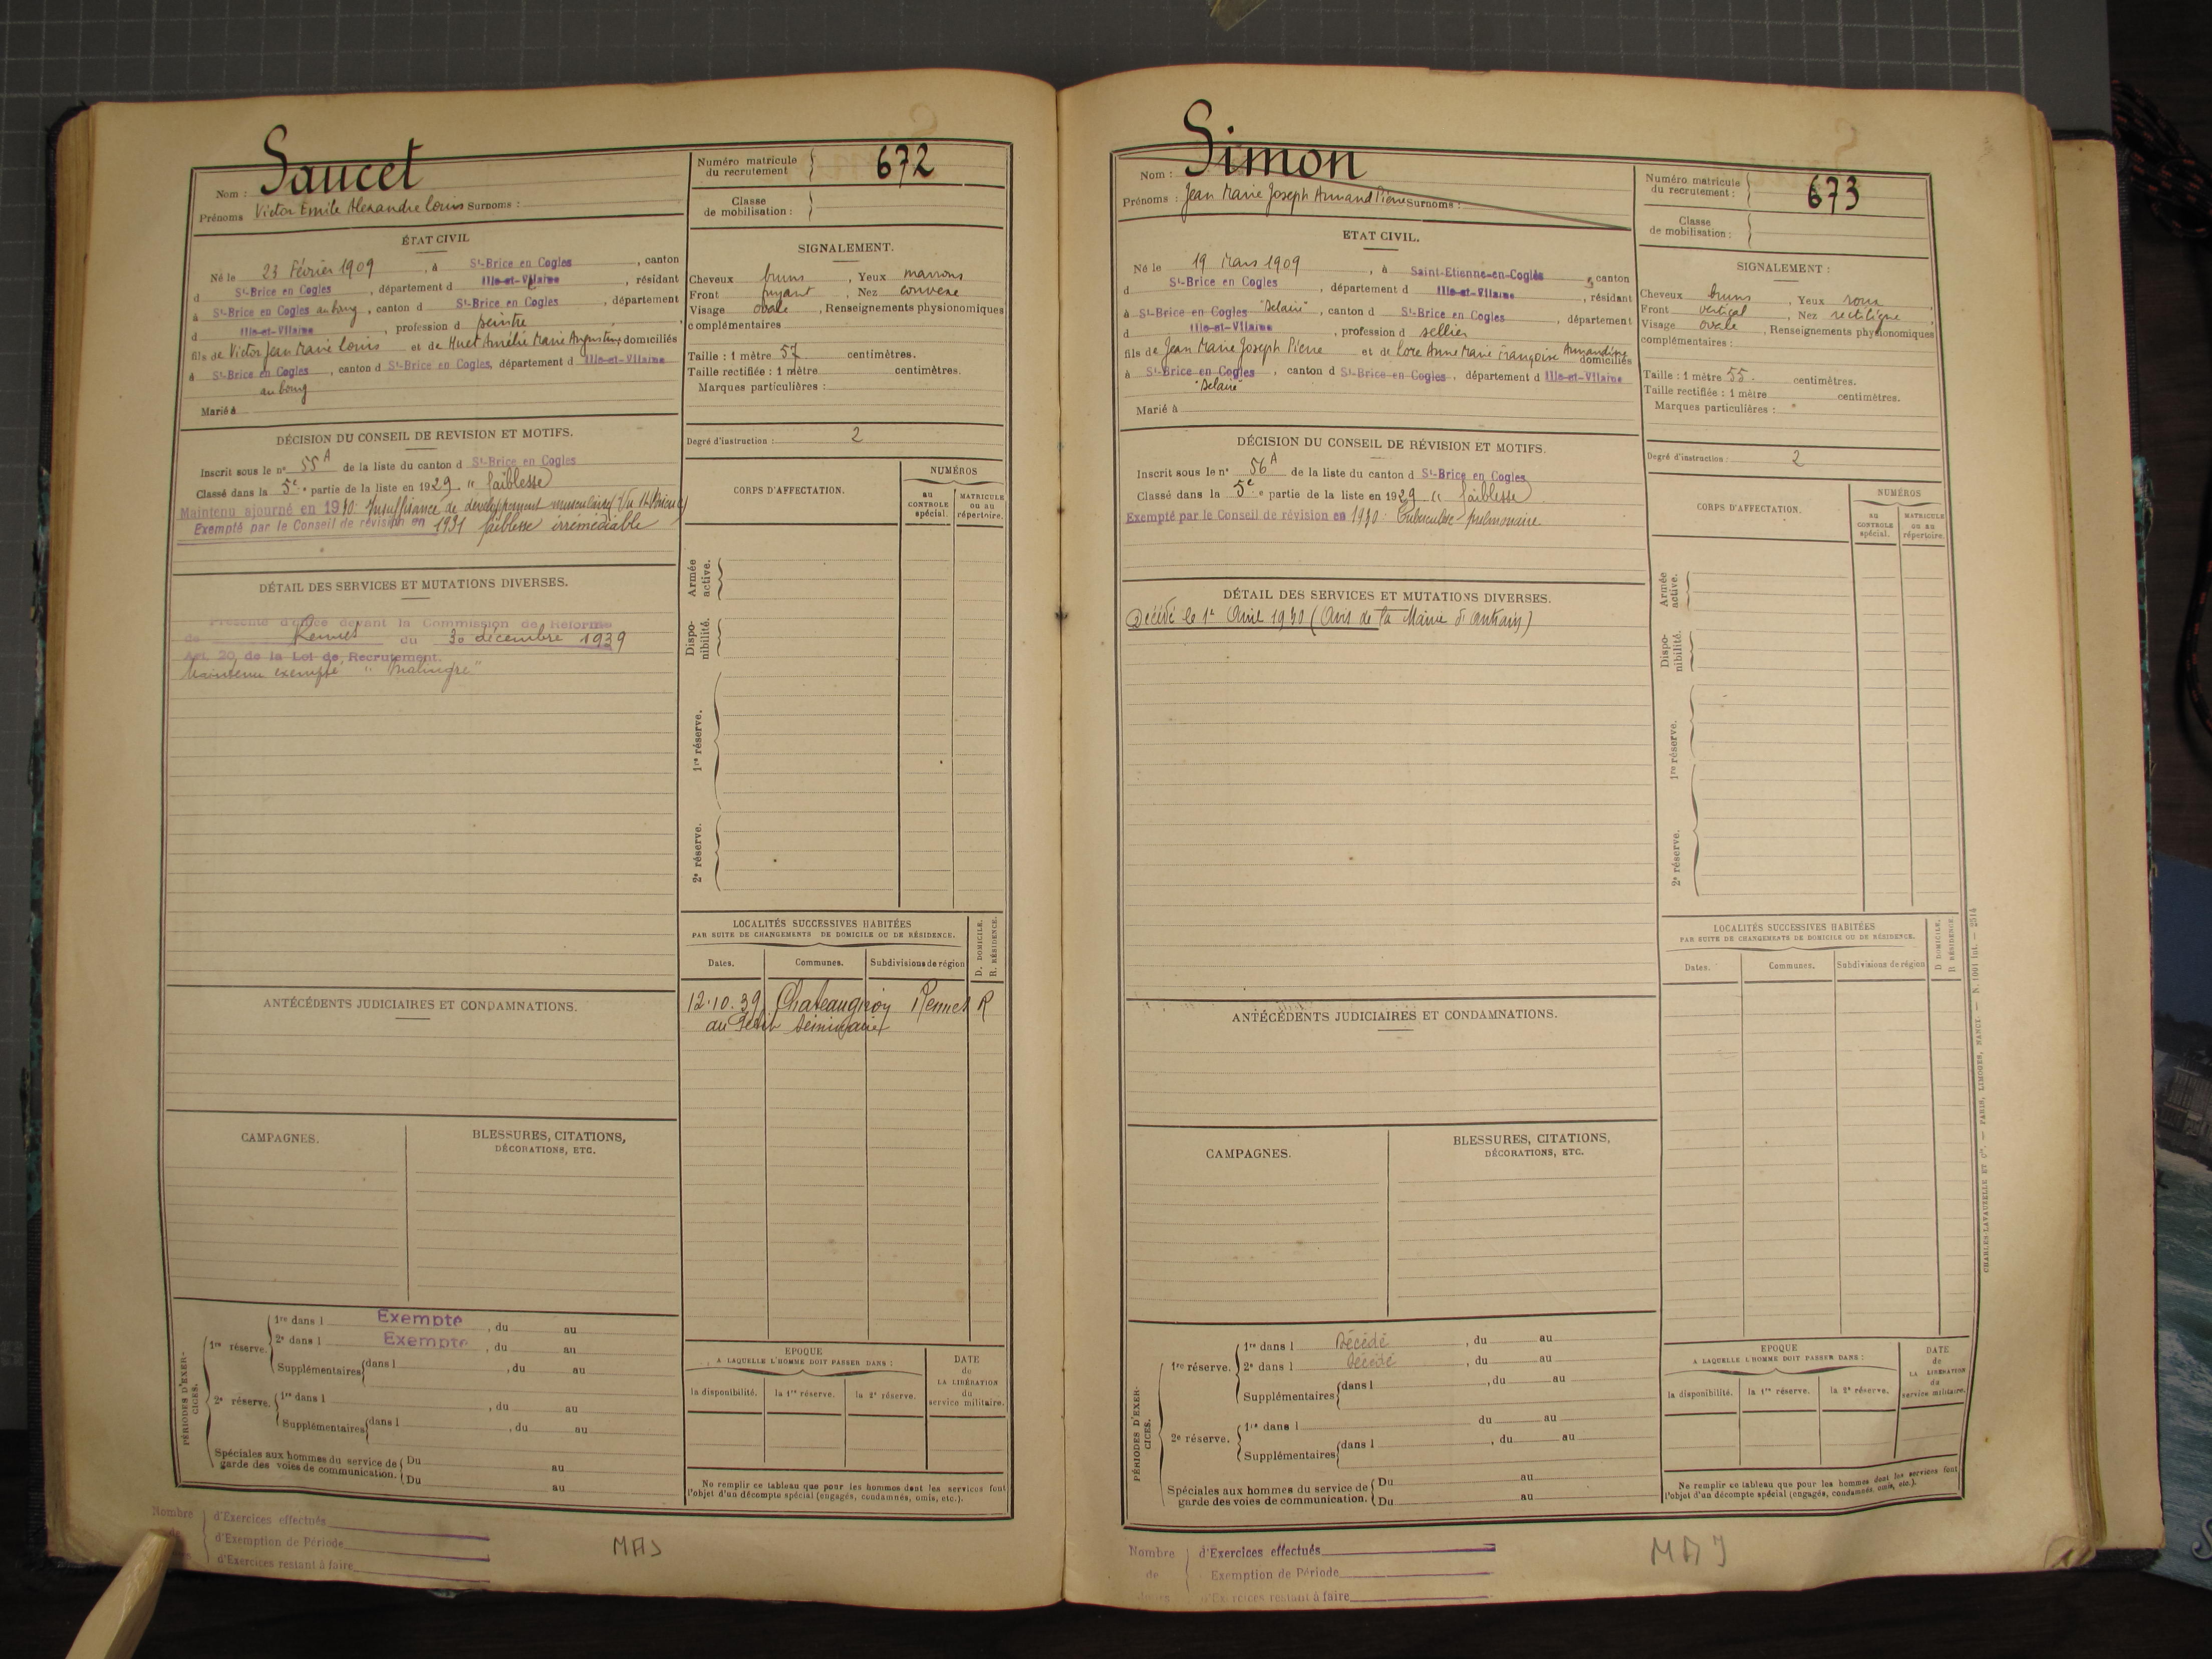 Saucet
Nom :
Prénoms Victor Emile Alexandre Louis Surnoms :
Numéro matricule
du recrutement
672
Classe
de mobilisation :
ÉTAT CIVIL
Né le 23 Février 1909, à St-Brice en Cogles, canton
d St-Brice en Cogles, département d Ille-et-Vilaine, résidant
à St-Brice en Cogles au bourg, canton d St-Brice en Cogles, département
d Ille-et-Vilaine, profession d peintre
fils de Victor Jean Marie Louis et de Huet Amélie Marie Augustine domiciliés
à St-Brice en Cogles, canton d St-Brice en Cogles, département d Ille-et-Vilaine
au bourg
Marié à
SIGNALEMENT.
Cheveux bruns, Yeux marrons
Front fuyant, Nez convexe
Visage ovale, Renseignements physionomiques
complémentaires
Taille : 1 mètre 57 centimètres.
Taille rectifiée : 1 mètre centimètres.
Marques particulières :
Degré d'instruction : 2
DÉCISION DU CONSEIL DE REVISION ET MOTIFS.
Inscrit sous le n° 55 A de la liste du canton d St-Brice en Cogles
Classé dans la 5e partie de la liste en 1929 "faiblesse"
Maintenu ajourné en 1930. Insuffisance de développement musculaire
Exempté par le Conseil de révision en 1931 faiblesse irrémédiable
DÉTAIL DES SERVICES ET MUTATIONS DIVERSES.
Présenté d'office devant la Commission de Réforme
de Rennes du 30 décembre 1939
Art. 20 de la Loi de Recrutement.
Maintenu exempté "Malingre"
CORPS D'AFFECTATION.
NUMÉROS
au
CONTROLE
spécial.
MATRICULE
ou au
répertoire.
Armée
active.
Dispo-
nibilité.
1re réserve.
2e réserve.
LOCALITÉS SUCCESSIVES HABITÉES
PAR SUITE DE CHANGEMENTS DE DOMICILE OU DE RÉSIDENCE.
D. DOMICILE.
R. RÉSIDENCE.
Dates.
Communes.
Subdivisions de région
12.10.39 Chateaugiron Rennes R
au Petit Séminaire
ANTÉCÉDENTS JUDICIAIRES ET CONDAMNATIONS.
CAMPAGNES.
BLESSURES, CITATIONS,
DÉCORATIONS, ETC.
PÉRIODES D'EXER-
CICES.
1re réserve.
1re dans l Exempté, du au
2e dans l Exempté, du au
Supplémentaires dans l , du au
2e réserve.
1re dans l , du au
Supplémentaires dans l , du au
Spéciales aux hommes du service de
garde des voies de communication.
Du au
Du au
EPOQUE
A LAQUELLE L'HOMME DOIT PASSER DANS :
la disponibilité.
la 1re réserve.
la 2e réserve.
DATE
de
LA LIBÉRATION
du
service militaire.
Ne remplir ce tableau que pour les hommes dont les services font
l'objet d'un décompte spécial (engagés, condamnés, omis, etc.).
Nombre
de
d'Exercices effectués
d'Exemption de Période
d'Exercices restant à faire
MAJ
Simon
Nom :
Prénoms : Jean Marie Joseph Armand Pierre Surnoms :
Numéro matricule
du recrutement :
673
Classe
de mobilisation :
ETAT CIVIL.
Né le 19 Mars 1909, à Saint-Etienne-en-Coglès, canton
d St-Brice en Cogles, département d Ille-et-Vilaine, résidant
à St-Brice en Cogles "Delaire", canton d St-Brice en Cogles, département
d Ille-et-Vilaine, profession d sellier
fils de Jean Marie Joseph Pierre et de Lore Anne Marie Françoise Armandine
domiciliés
à St-Brice en Cogles, canton d St-Brice en Cogles, département d Ille-et-Vilaine
"Delaire"
Marié à
SIGNALEMENT :
Cheveux bruns, Yeux roux
Front vertical, Nez rectiligne
Visage ovale, Renseignements physionomiques
complémentaires :
Taille : 1 mètre 55 centimètres.
Taille rectifiée : 1 mètre centimètres.
Marques particulières : "
Degré d'instruction : 2
DÉCISION DU CONSEIL DE RÉVISION ET MOTIFS.
Inscrit sous le n° 56 A de la liste du canton d St-Brice en Cogles
Classé dans la 5e e partie de la liste en 1929 "faiblesse"
Exempté par le Conseil de révision en 1930. Tuberculose pulmonaire
DÉTAIL DES SERVICES ET MUTATIONS DIVERSES.
Décédé le 1er Avril 1930 (Avis de la Mairie d'Antrain)
CORPS D'AFFECTATION.
NUMÉROS
au
CONTROLE
spécial.
MATRICULE
ou au
répertoire.
Armée
active.
Dispo-
nibilité.
1re réserve.
2e réserve.
LOCALITÉS SUCCESSIVES HABITÉES
PAR SUITE DE CHANGEMENTS DE DOMICILE OU DE RÉSIDENCE.
D DOMICILE.
R RÉSIDENCE.
Dates.
Communes.
Subdivisions de région
ANTÉCÉDENTS JUDICIAIRES ET CONDAMNATIONS.
CAMPAGNES.
BLESSURES, CITATIONS,
DÉCORATIONS, ETC.
PÉRIODES D'EXER-
CICES.
1re réserve.
1re dans l Décédé, du au
2e dans l Décédé, du au
Supplémentaires dans l , du au
2e réserve.
1re dans l du au
Supplémentaires dans l , du au
Spéciales aux hommes du service de
garde des voies de communication.
Du au
Du au
EPOQUE
A LAQUELLE L'HOMME DOIT PASSER DANS :
la disponibilité.
la 1re réserve.
la 2e réserve.
DATE
de
LA LIBÉRATION
du
service militaire.
Ne remplir ce tableau que pour les hommes dont les services font
l'objet d'un décompte spécial (engagés, condamnés, omis, etc.).
Nombre
de
jours
d'Exercices effectués
Exemption de Période
d'Exercices restant à faire
MAJ
CHARLES-LAVAUZELLE ET Cie. — PARIS, LIMOGES, NANCY. — N. 1001 Int. — 2514